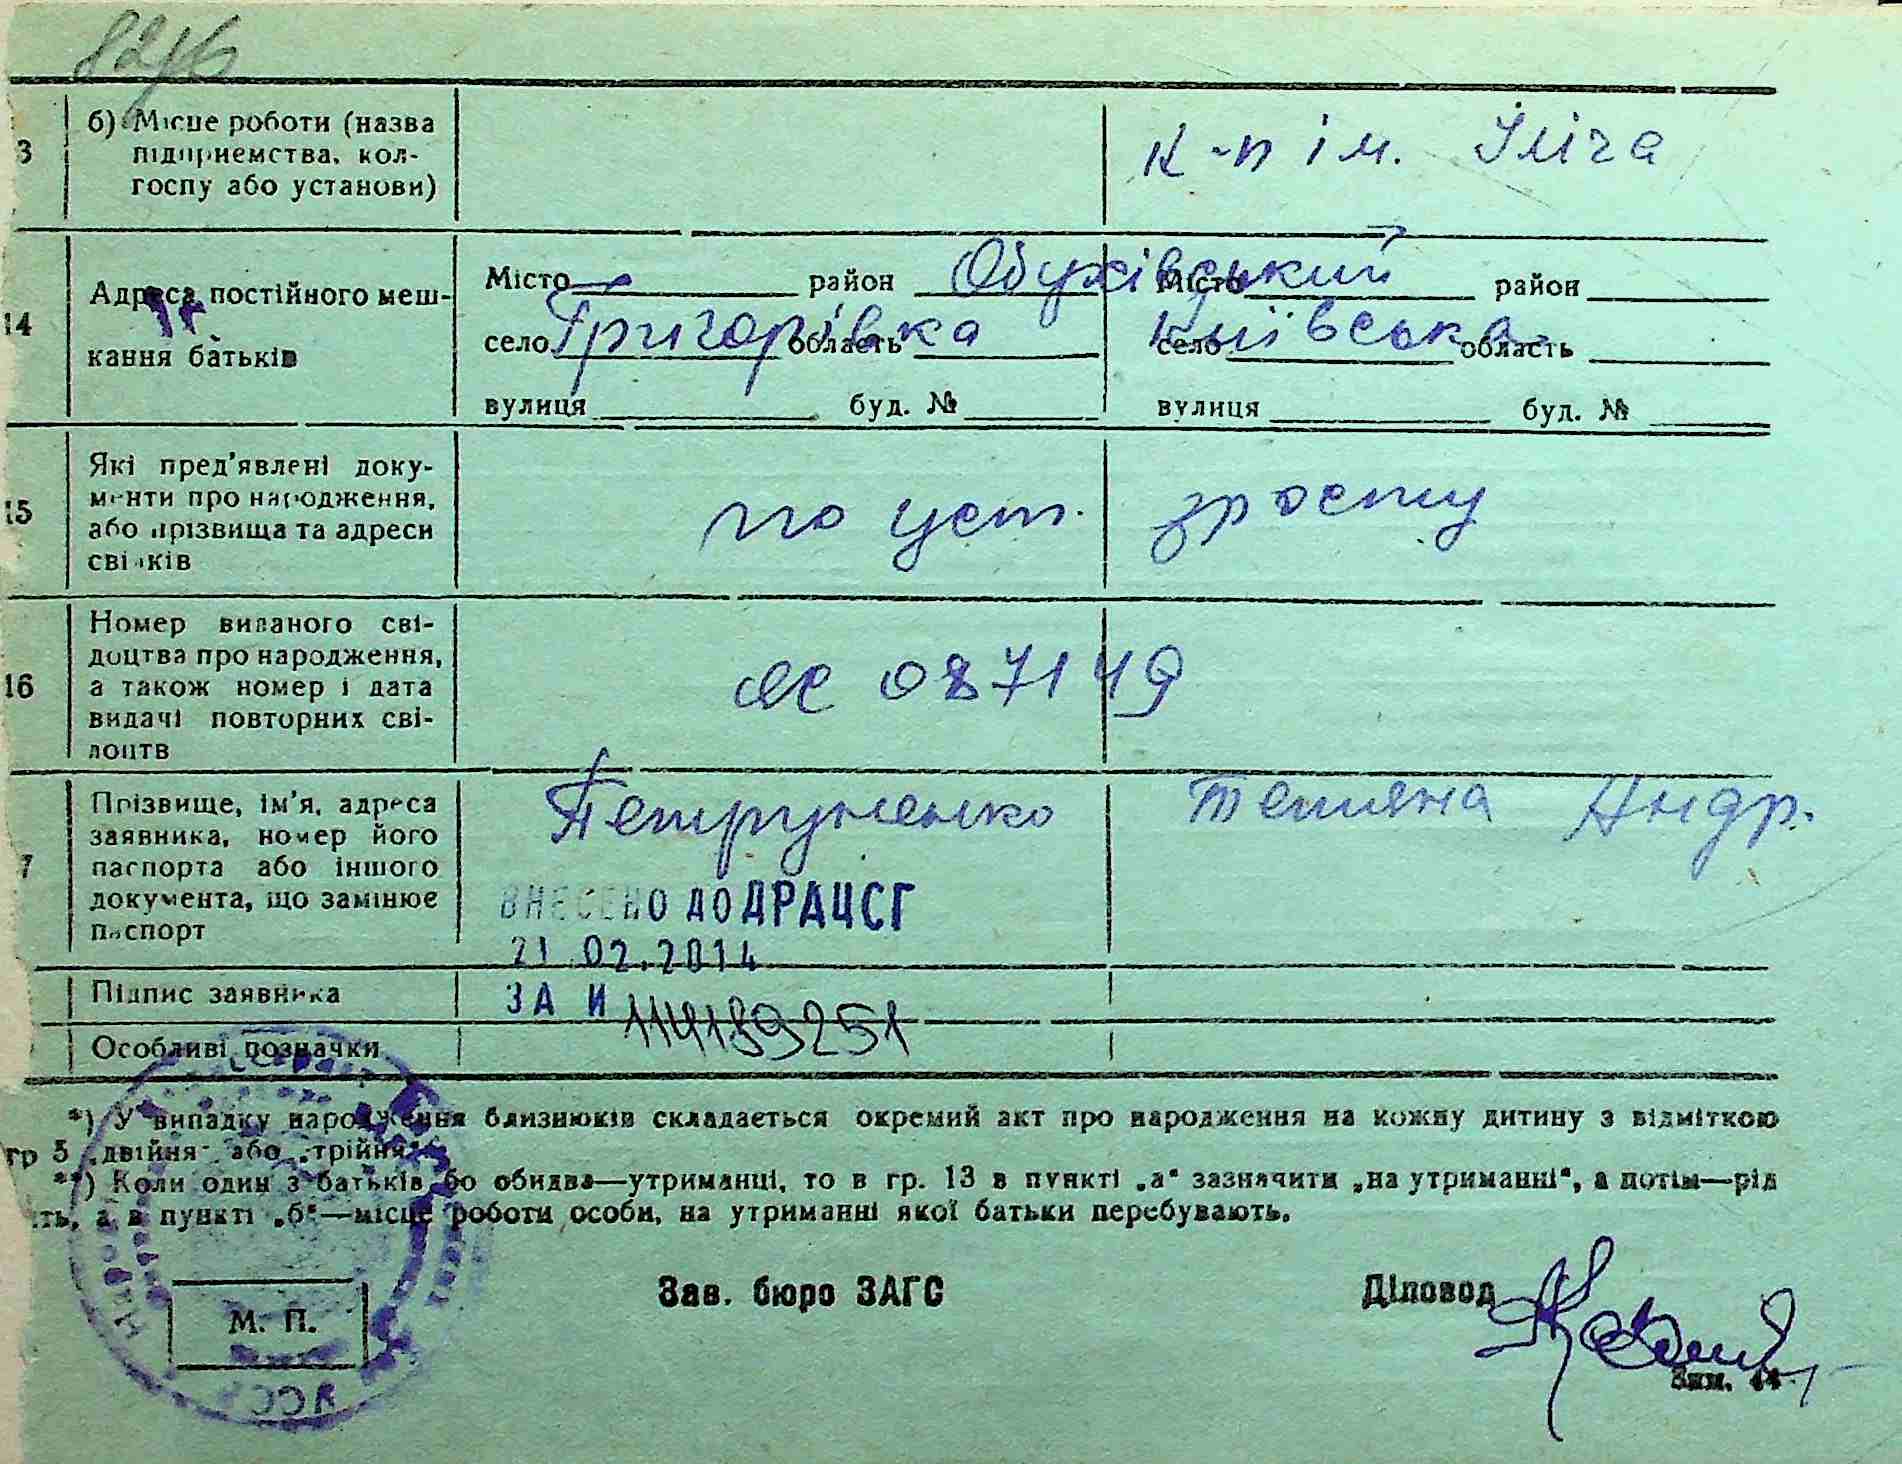 82/6
3 б) Місце роботи (назва
підприємства, кол-
госпу або установи)
к-п ім. Ілліча
14 Адреса постійного меш-
кання батьків
Місто район Обухівський Місто район
село Григорівка область Київська село область
вулиця буд. № вулиця буд. №
15 Які пред'явлені доку-
менти про народження,
або прізвища та адреси
свідків
по уст. зросту
16 Номер виданого сві-
доцтва про народження,
а також номер і дата
видачі повторних сві-
доцтв
087149
7 Прізвище, ім'я, адреса
заявника, номер його
паспорта або іншого
документа, що замінює
паспорт
Петруненко Тетяна Андр.
ВНЕСЕНО ДО ДРАЦСГ
21 02.2014
Підпис заявника
ЗА И 114189251
Особливі позначки
*) У випадку народження близнюків складається окремий акт про народження на кожну дитину з відміткою
гр 5 „двійня" або „трійня".
**) Коли один з батьків бо обидва—утриманці, то в гр. 13 в пункті „а" зазначити „на утриманні", а потім—рід
ть, а в пункті „б"—місце роботи особи, на утриманні якої батьки перебувають.
М. П.
Зав. бюро ЗАГС
Діловод
Зам. 44